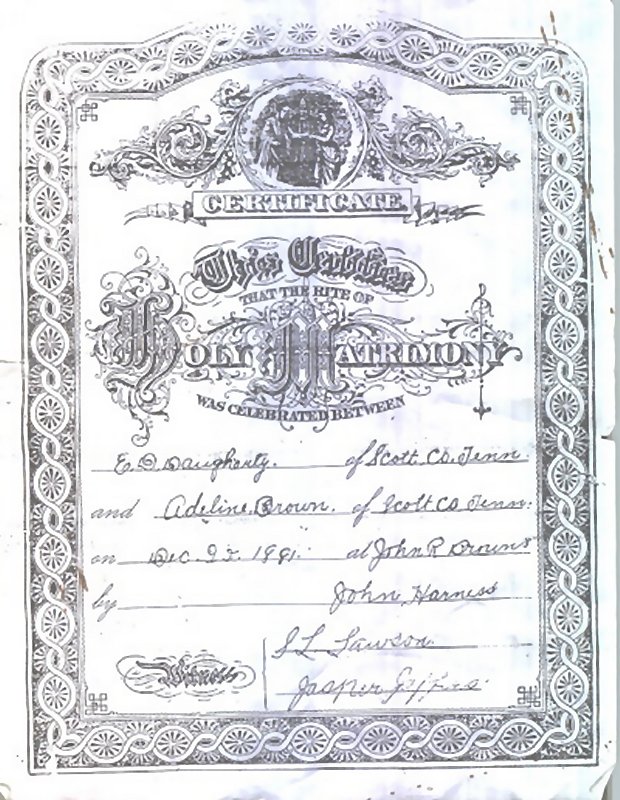 CERTIFICATE
This Certifies
THAT THE RITE OF
HOLY MATRIMONY
WAS CELEBRATED BETWEEN
E. D. Daugharty. of Scott. Co. Tenn.
and Adeline Brown. of Scott Co Tenn.
on Dec. 1891. at John R Browns
by John Harness
Witness
J L Lawson
Jasper